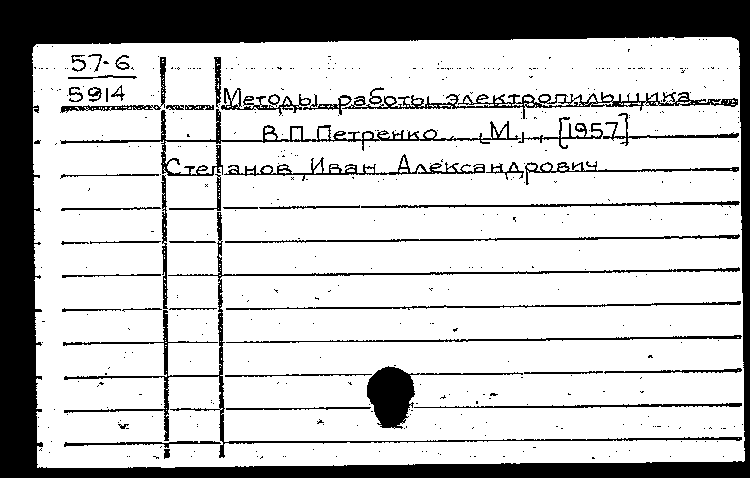 57-6
5914
Методы работы электропильщика
В.П. Петренко. [М.], [1957]
Степанов Иван Александрович